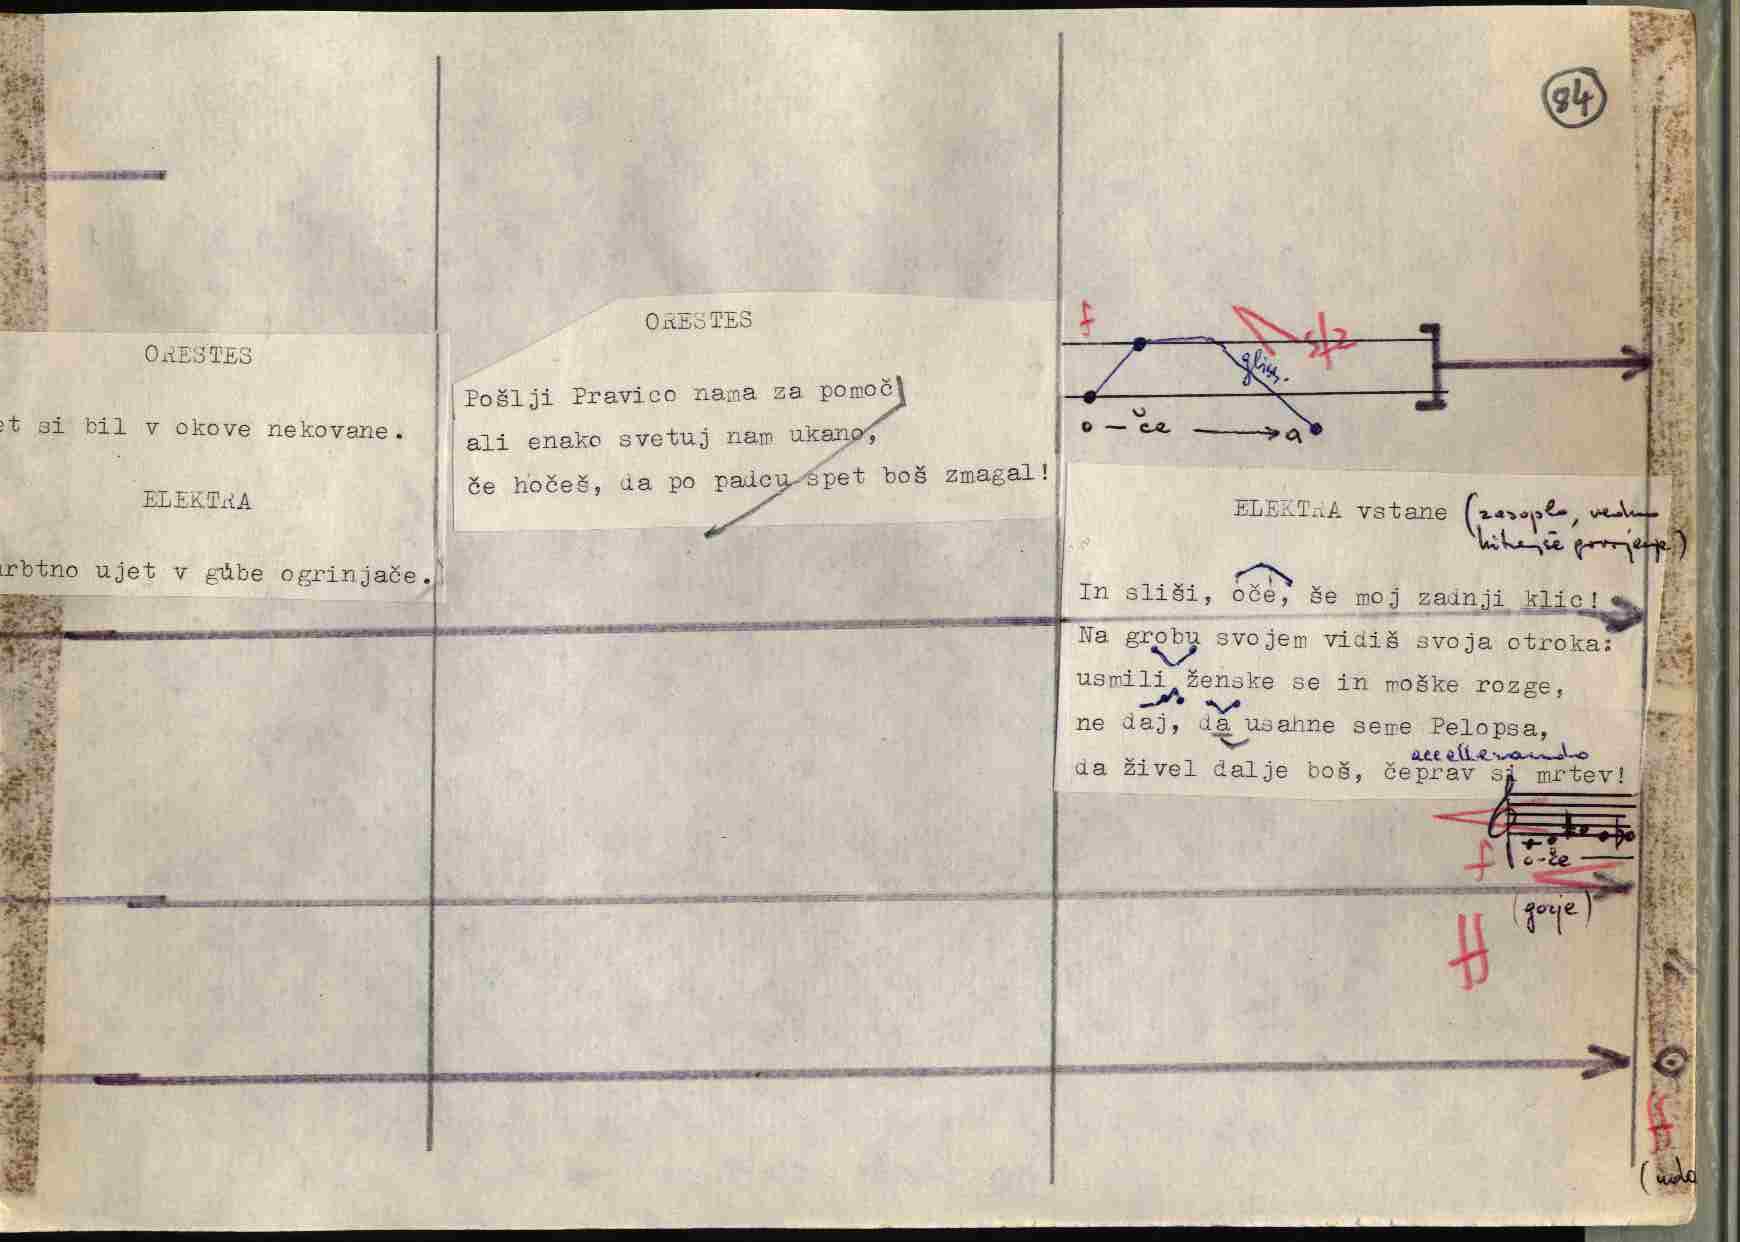 84
ORESTES
et si bil v okove nekovane.
ELEKTRA
rbtno ujet v gube ogrinjače.
ORESTES
Pošlji Pravico nama za pomoč
ali enako svetuj nam ukano,
če hočeš, da po padcu spet boš zmagal!
f
sfz
gliss.
o - če → a
ELEKTRA vstane (zasoplo, vedno
hitrejše govorjenje)
In sliši, oče, še moj zadnji klic!
Na grobu svojem vidiš svoja otroka:
usmili ženske se in moške rozge,
ne daj, da usahne seme Pelopsa,
accellerando
da živel dalje boš, čeprav si mrtev!
f
o-če
(gorje)
ff